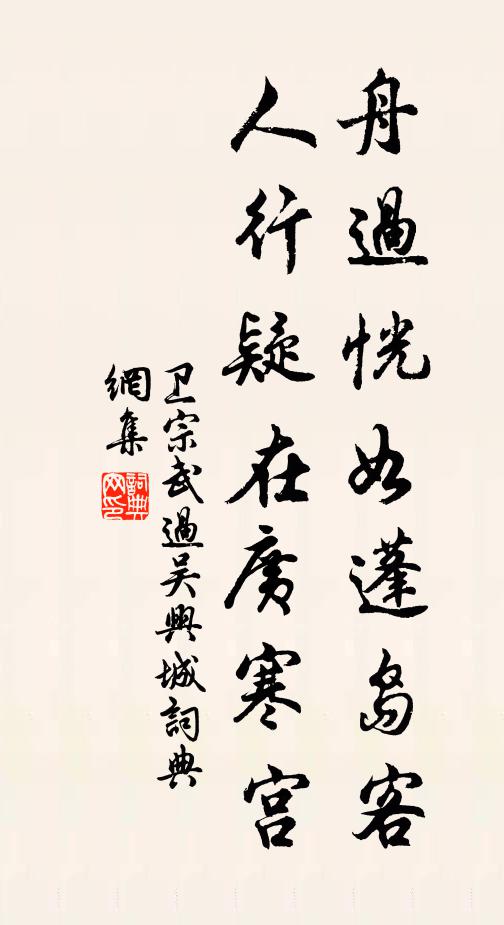 舟過恍如蓬島客
人行疑在廣寒宮
卫宗武過吴興城詞典
網集
詞典
网印